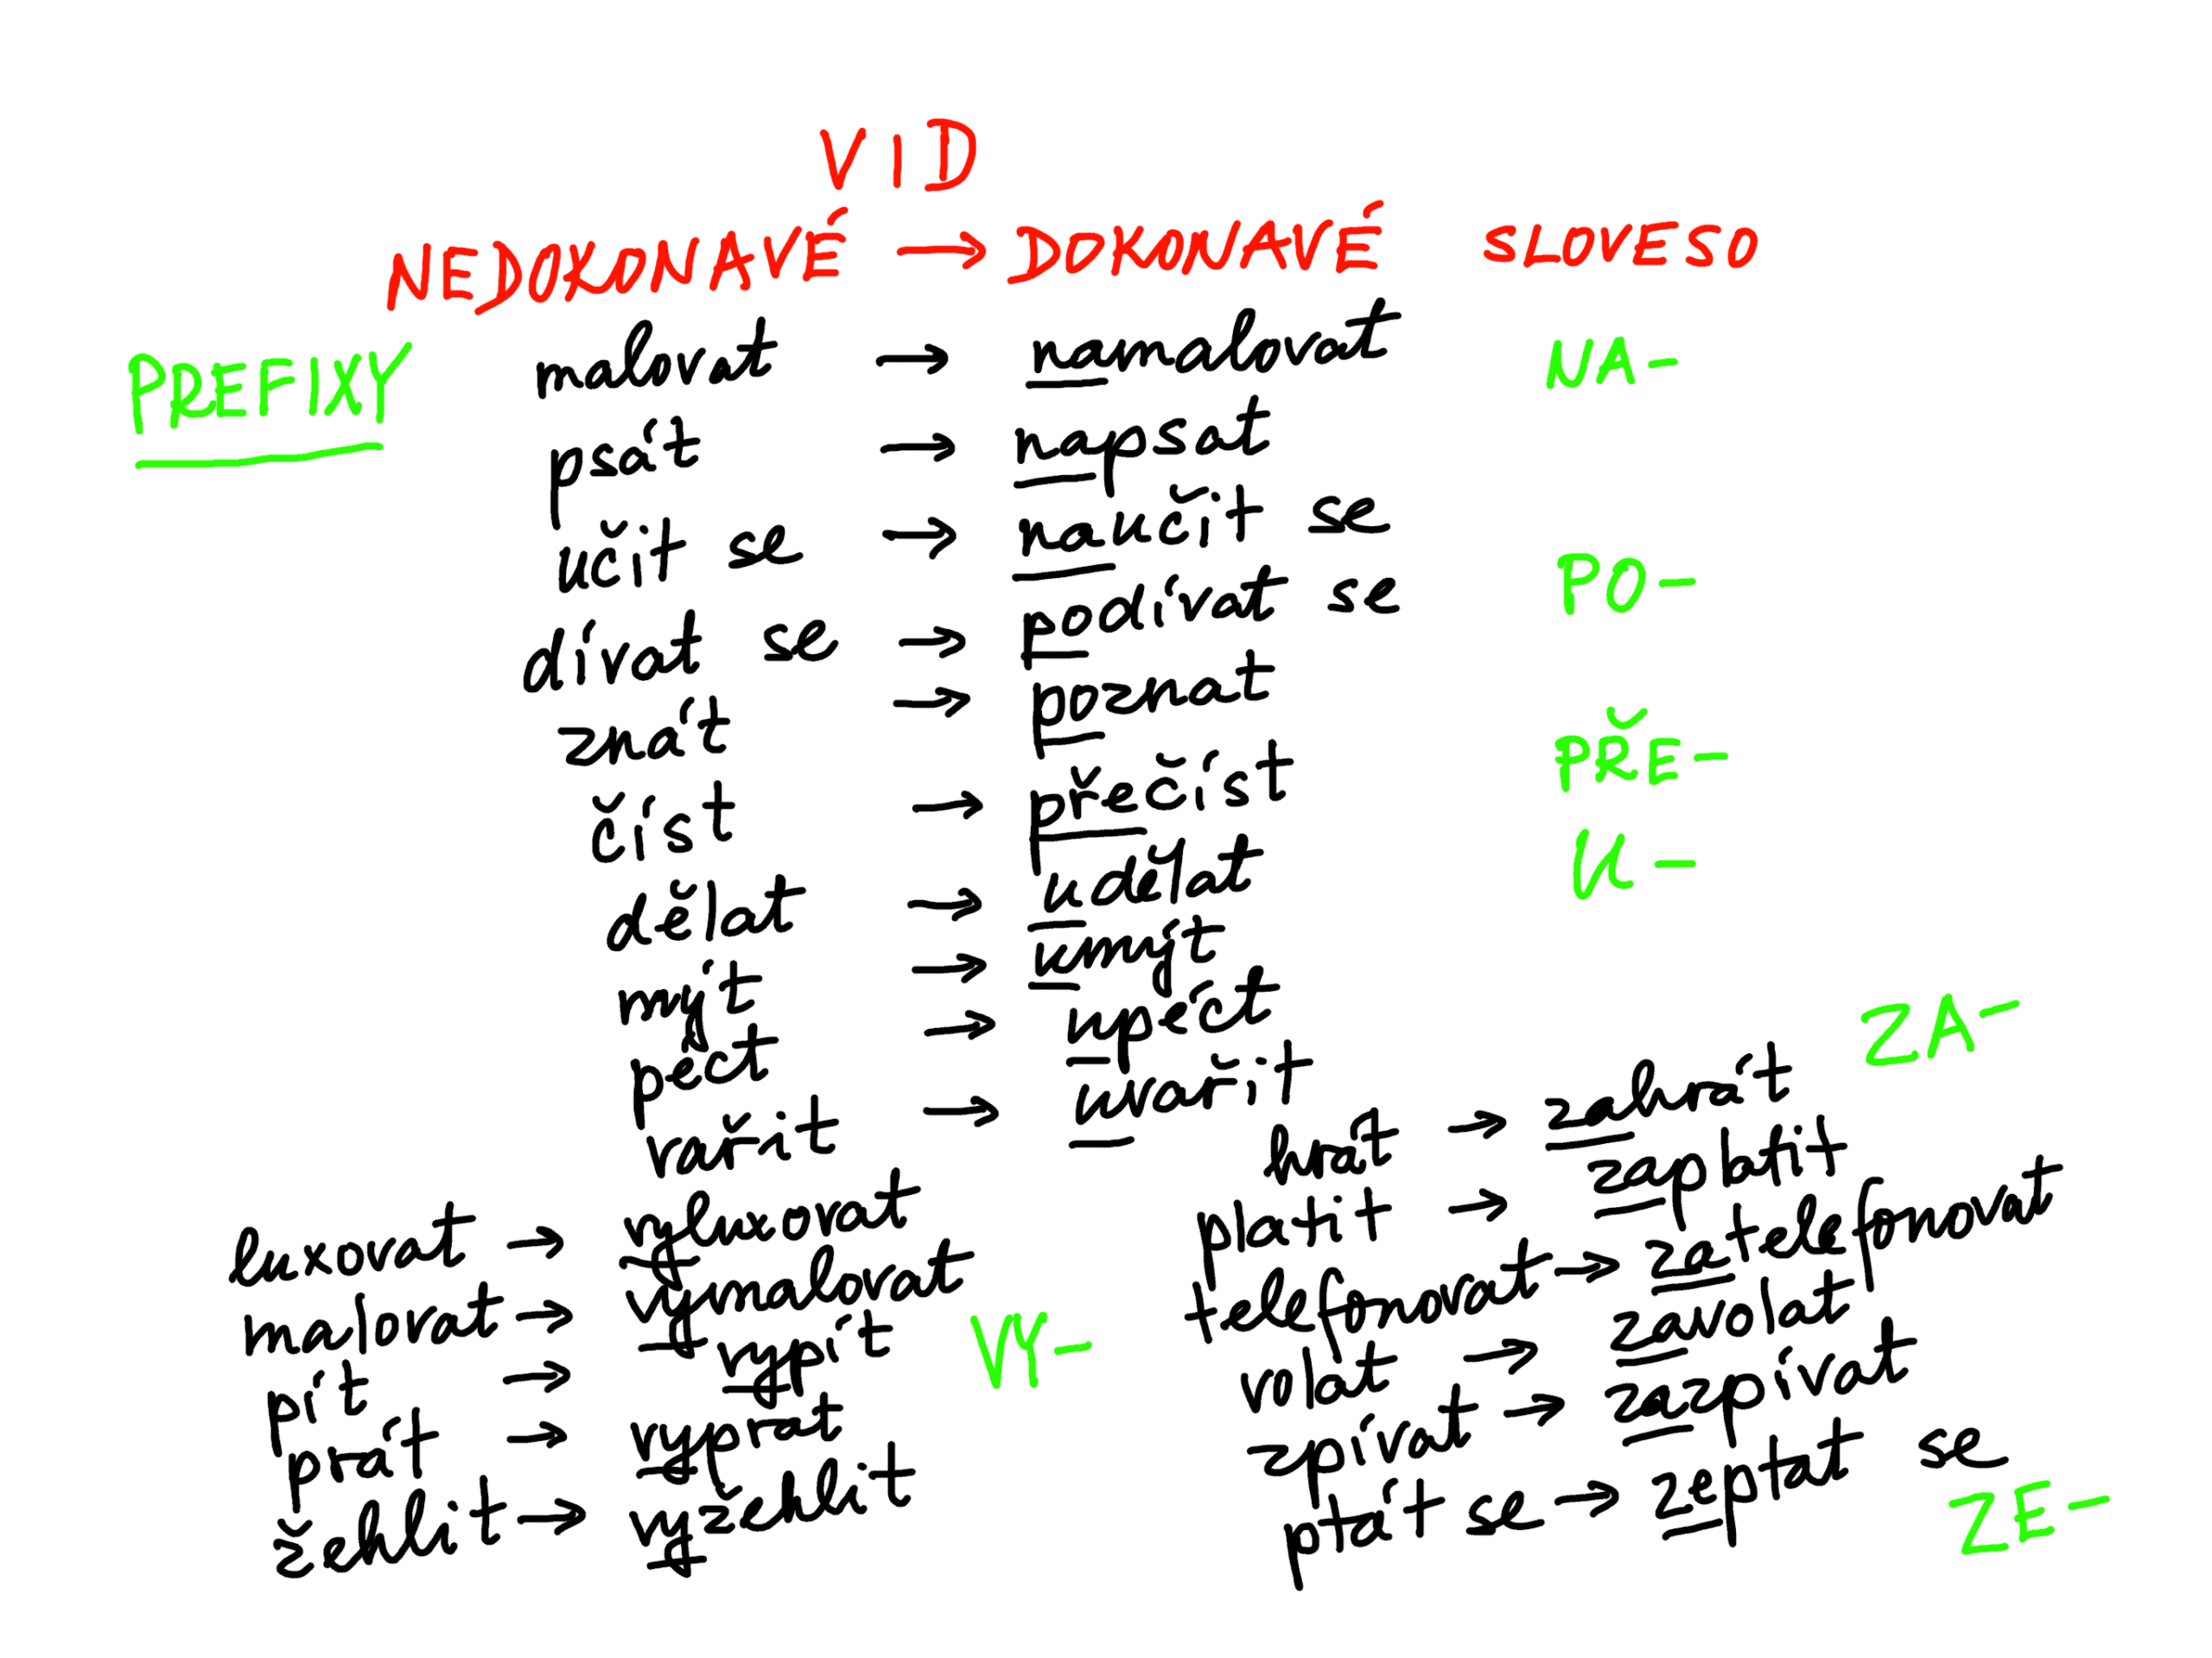 VID
NEDOKONAVÉ → DOKONAVÉ SLOVESO
PREFIXY
malovat → namalovat NA-
psát → napsat
učit se → naučit se
dívat se → podívat se PO-
znát → poznat
číst → přečíst PŘE-
dělat → udělat U-
mýt → umýt
péct → upéct
vařit → uvařit
luxovat → vyluxovat
malovat → vymalovat
pít → vypít VY-
prát → vyprat
žehlit → vyžehlit
ZA-
hrát → zahrát
platit → zaplatit
telefonovat → zatelefonovat
volat → zavolat
zpívat → zazpívat
ptát se → zeptat se
ZE-